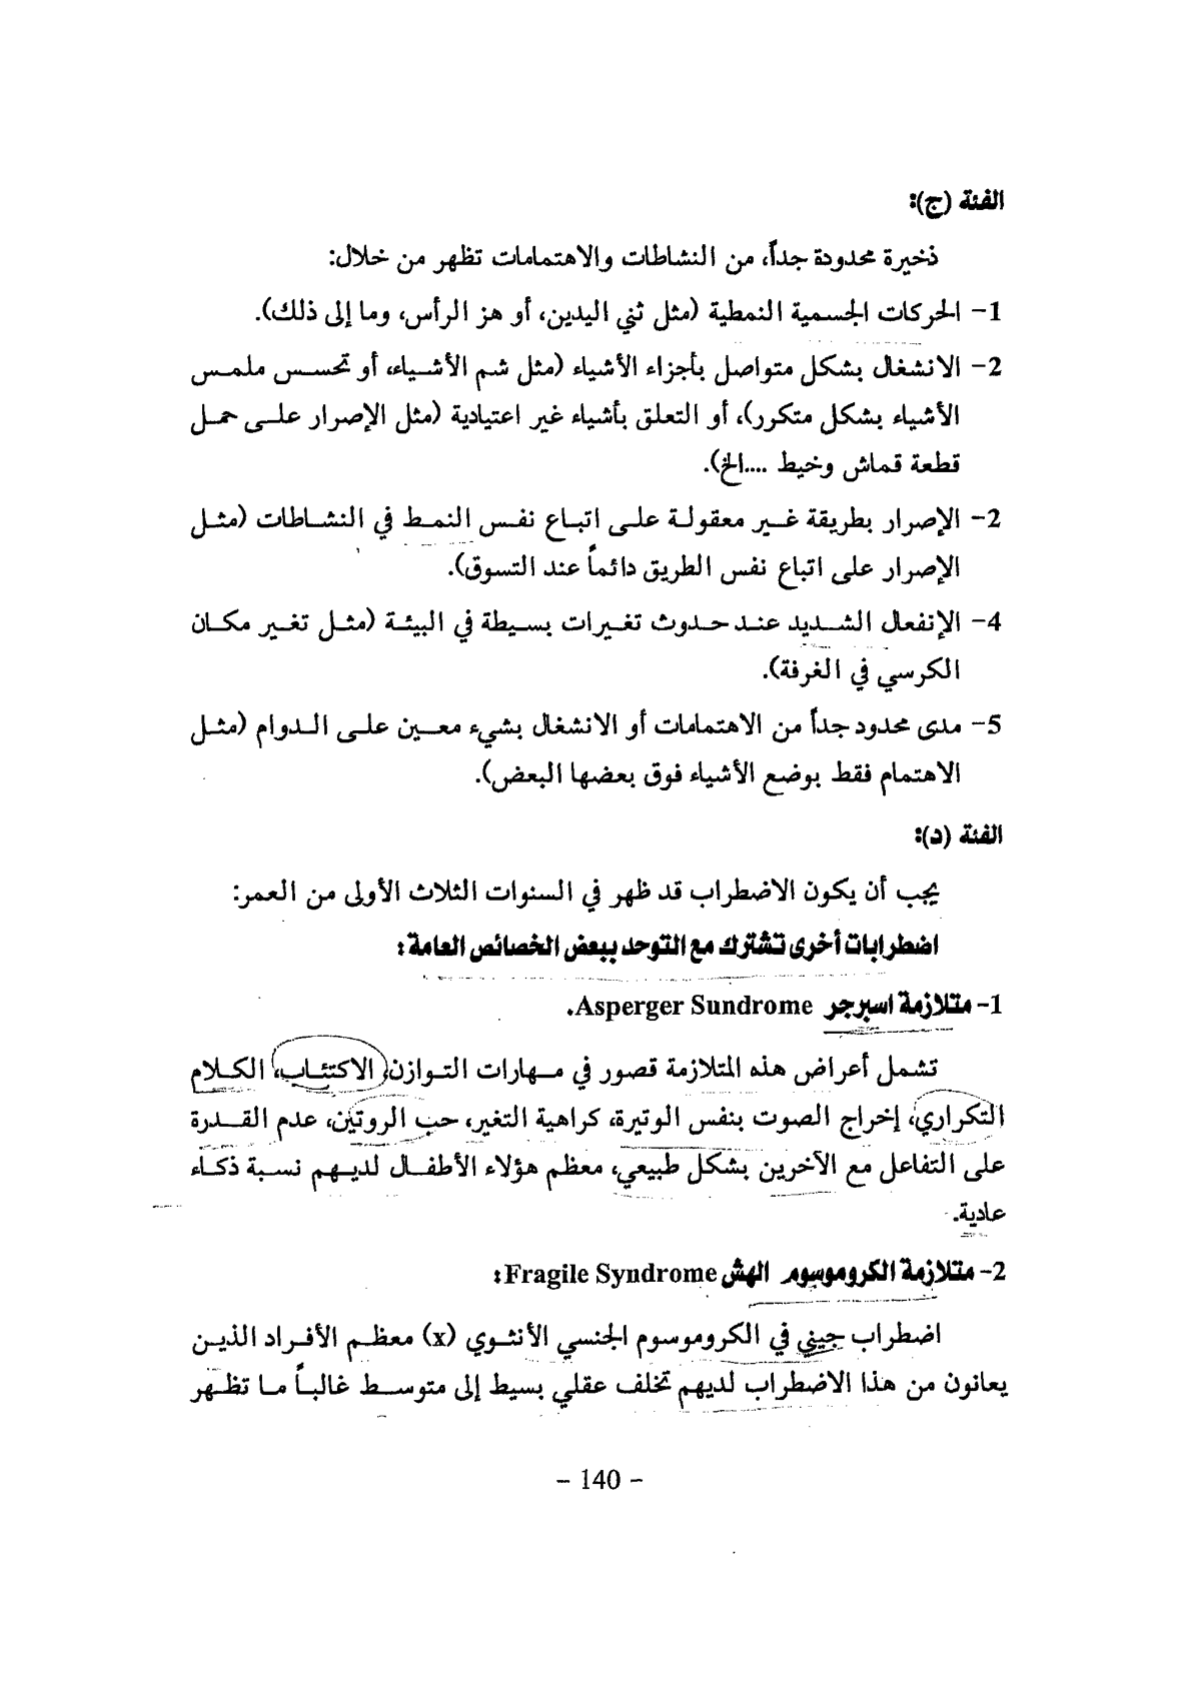 الفئة (ج):
ذخيرة محدودة جداً، من النشاطات والاهتمامات تظهر من خلال:
1- الحركات الجسمية النمطية (مثل ثني اليدين، أو هز الرأس، وما إلى ذلك).
2- الانشغال بشكل متواصل بأجزاء الأشياء (مثل شم الأشياء، أو تحسس ملمس
الأشياء بشكل متكرر)، أو التعلق بأشياء غير اعتيادية (مثل الإصرار على حمل
قطعة قماش وخيط ....الخ).
2- الإصرار بطريقة غير معقولة على اتباع نفس النمط في النشاطات (مثل
الإصرار على اتباع نفس الطريق دائماً عند التسوق).
4- الإنفعال الشديد عند حدوث تغيرات بسيطة في البيئة (مثل تغير مكان
الكرسي في الغرفة).
5- مدى محدود جداً من الاهتمامات أو الانشغال بشيء معين على الدوام (مثل
الاهتمام فقط بوضع الأشياء فوق بعضها البعض).
الفئة (د):
يجب أن يكون الاضطراب قد ظهر في السنوات الثلاث الأولى من العمر:
اضطرابات أخرى تشترك مع التوحد ببعض الخصائص العامة:
1- متلازمة اسبرجر Asperger Sundrome.
تشمل أعراض هذه المتلازمة قصور في مهارات التوازن، الاكتئاب، الكلام
التكراري، إخراج الصوت بنفس الوتيرة، كراهية التغير، حب الروتين، عدم القدرة
على التفاعل مع الآخرين بشكل طبيعي، معظم هؤلاء الأطفال لديهم نسبة ذكاء
عادية.
2- متلازمة الكروموسوم الهش Fragile Syndrome:
اضطراب جيني في الكروموسوم الجنسي الأنثوي (x) معظم الأفراد الذين
يعانون من هذا الاضطراب لديهم تخلف عقلي بسيط إلى متوسط غالباً ما تظهر
- 140 -